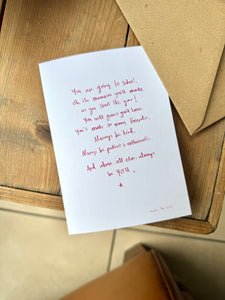 You are going to school.
Oh the memories you'll make
as you start this year!
You will grow & you'll learn
You'll make so many friends.
Always be kind.
Always be patient & enthusiastic.
And above all else, always
be YOU.